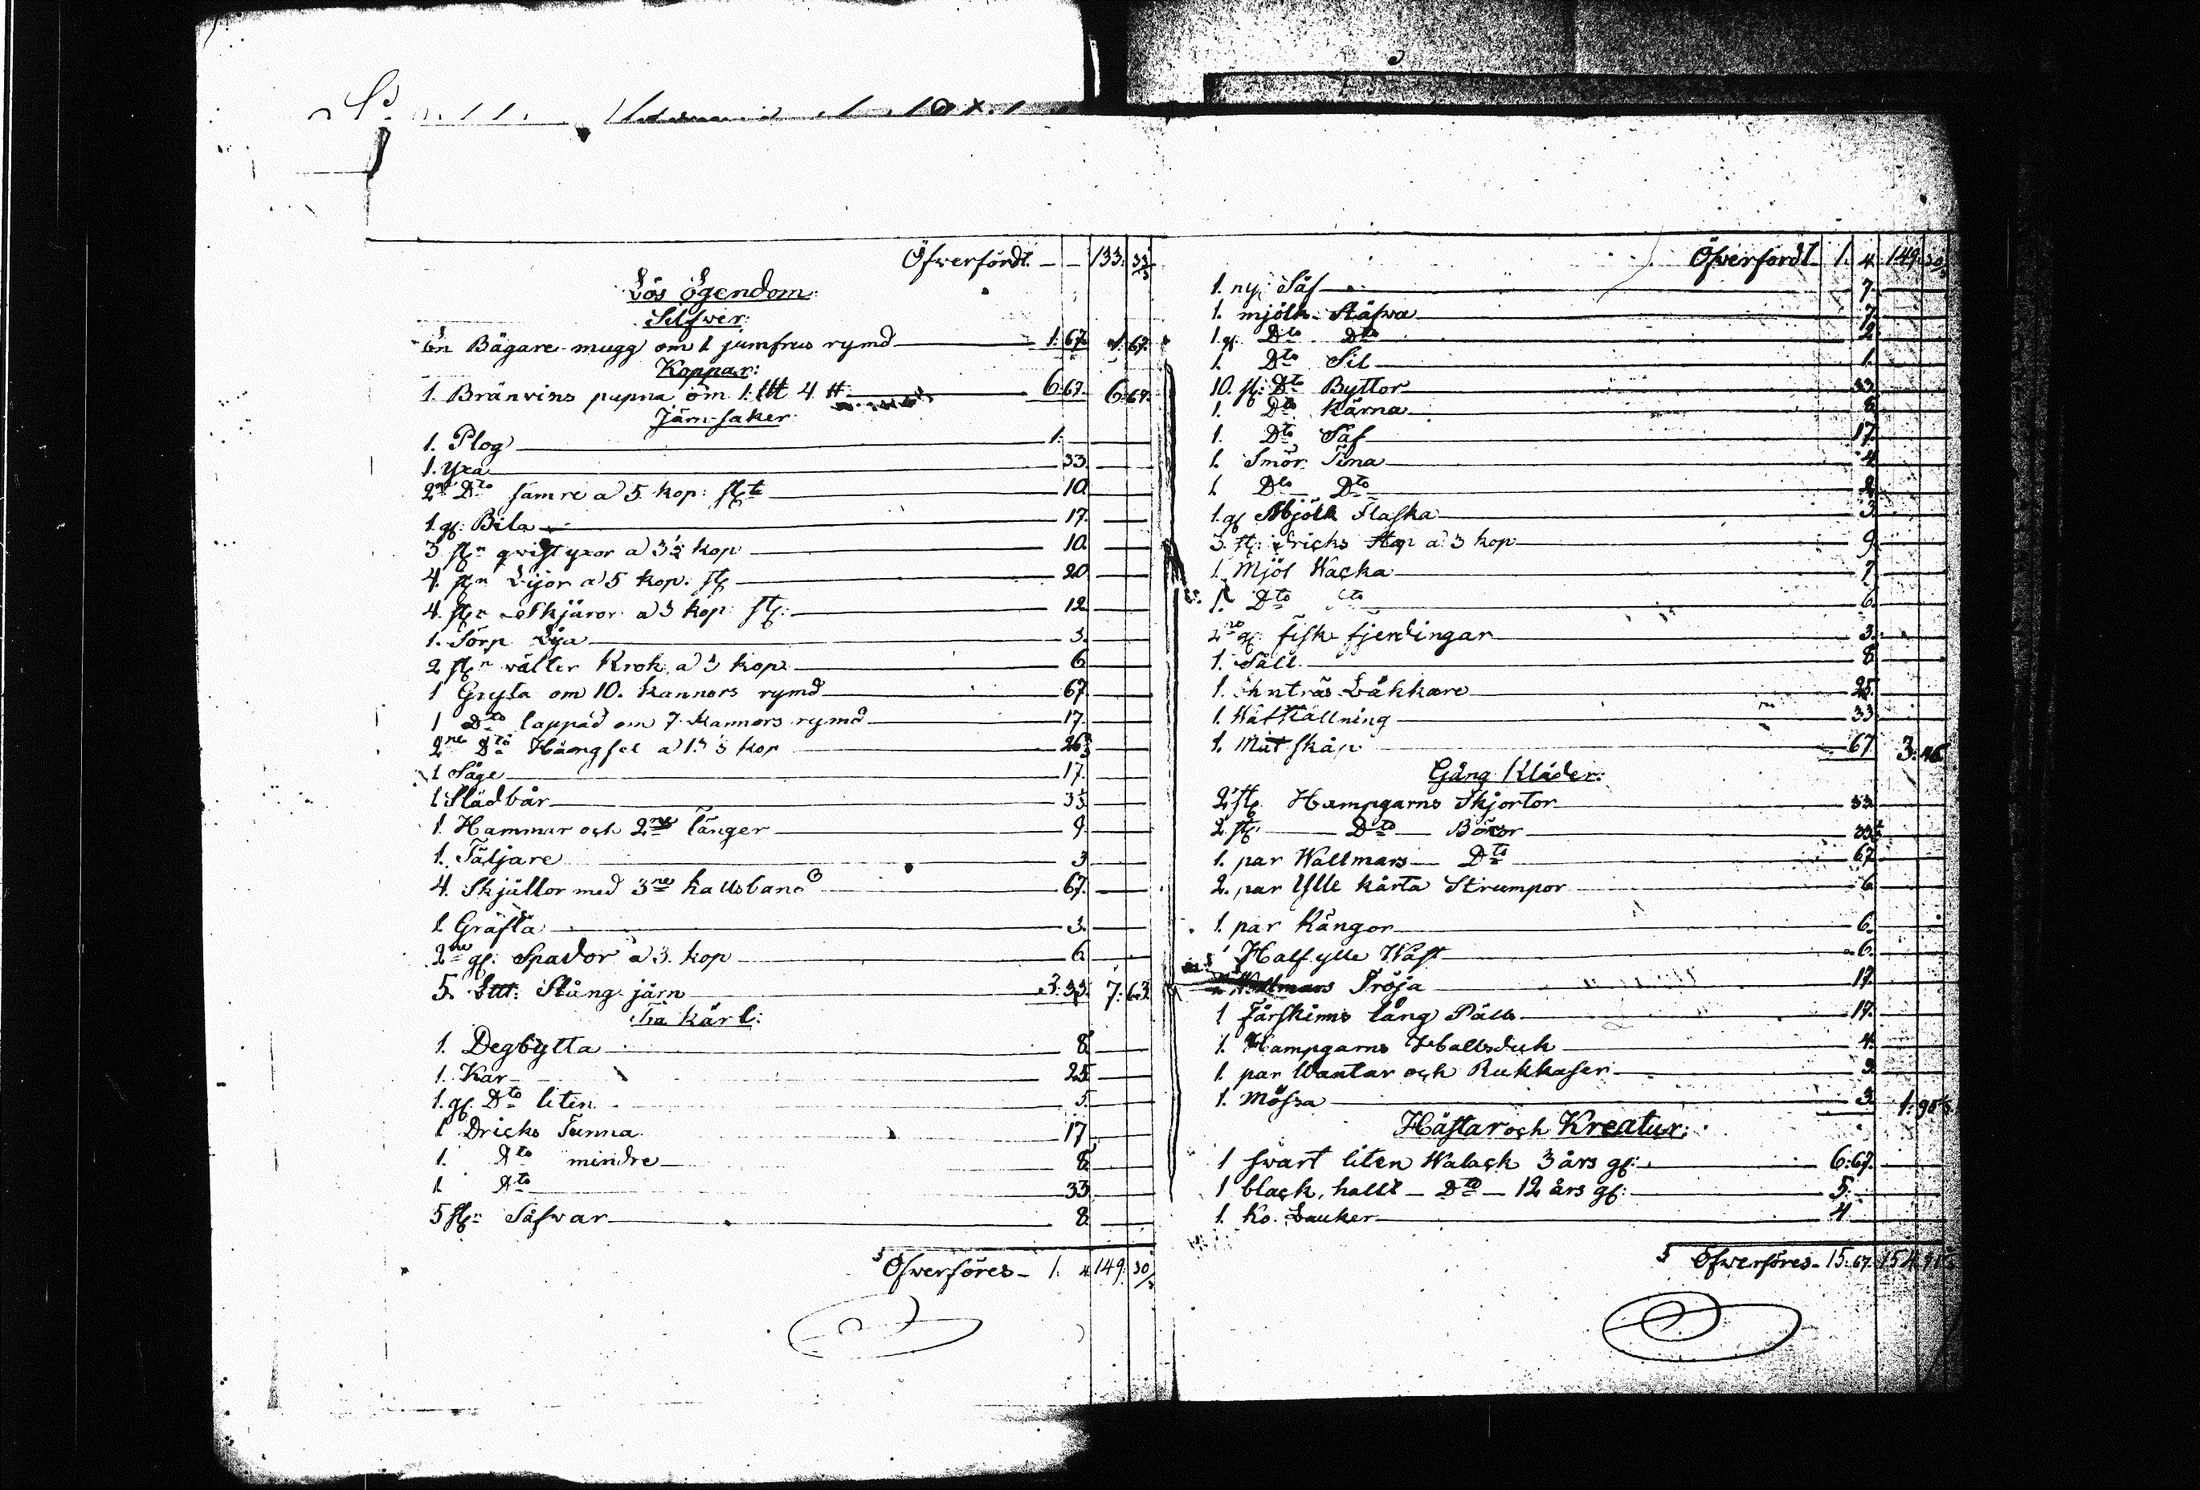 Öfwerfördt — — 133. 33
Lös Egendom:
Silfwer:
En Bägare mugg om 1 jumfrus rymd 1:67. 1:67.
Koppar:
1. Bränvins panna om 1. Ltt 4 tt 6:67. 6:67.
Järn-saker
1. Plog 1.
1. Yxa 33.
2ne Dto sämre a 5 kop: st 10.
1. gl: Bila 17.
3 stn qvistyxor a 3 1/3 kop 10.
4. stn Lijor a 5 kop. st 20
4. stn Skjäror a 3 kop: st: 12
1. Törp Lija 3.
2 stn välter Krok a 3 kop 6
1 Gryta om 10. kannors rymd 67.
1 Dto lappad om 7. kannors rymd 17.
2ne Dto Hängsel a 13 1/3 kop 26 2/3
1 Såge 17.
1 Slädbår 33.
1. Hammar och 2ne Tänger 9.
1. Täljare 3
4. Skjällor med 3ne hallsband 67.
1. Gräfta 3.
2ne gl: Spador a 3. kop 6
5. Ltt: Stång järn 3:33. 7:63.
Trä kärl:
1. Degbytta 8.
1. Kar 25
1. gl. Dto liten 5.
1 Dricks Tunna 17
1. Dto mindre 8.
1 Dto 33
5 stn Såfwar 8
Öfwerföres — 1. 4. 149. 30
Öfwerfördt 1. 4. 149. 30
1. ny: Såf 7.
1. mjölk Stäfwa 7.
1. gl. Dto Dto 2.
1. Dto Sil 1.
10. st: Dto Byttor 33
1. Dto Kärna 8
1. Dto Såf 17.
1. Smör Tina 4
1. Dto Dto 2
1. gl Mjölk Flaska 3
3. st: Dricks Stop a 3 kop 9.
1. Mjöl Wacka 7
1. Dto Dto 6.
2ne gl: fisk fjerdingar 3.
1. Såll 8
1. Låkkare 25.
1. Wäfställning 33
1. Matskåp 67 3:46
Gång Kläder:
2 st. Hampgarns Skjortor 33
2 st: Dto Böxor
1. par Wallmars Dto 67
2. par Ylle kårta Strumpor 6
1. par Kängor 6.
1 Halfylle Wäst 6.
Wallmars Tröja 17.
1 Fårskinns lång Päls 17.
1. Hampgarns Hallsduk 4.
1. par Wantar och Rukkaser 3.
1. Mössa 3
Hästar och Kreatur:
1 swart liten Walack 3 års gl: 6:67.
1 black, hallt — Dto — 12 års gl: 5.
1. Ko. Lauker 4
Öfwerföres — 15:67. 154.